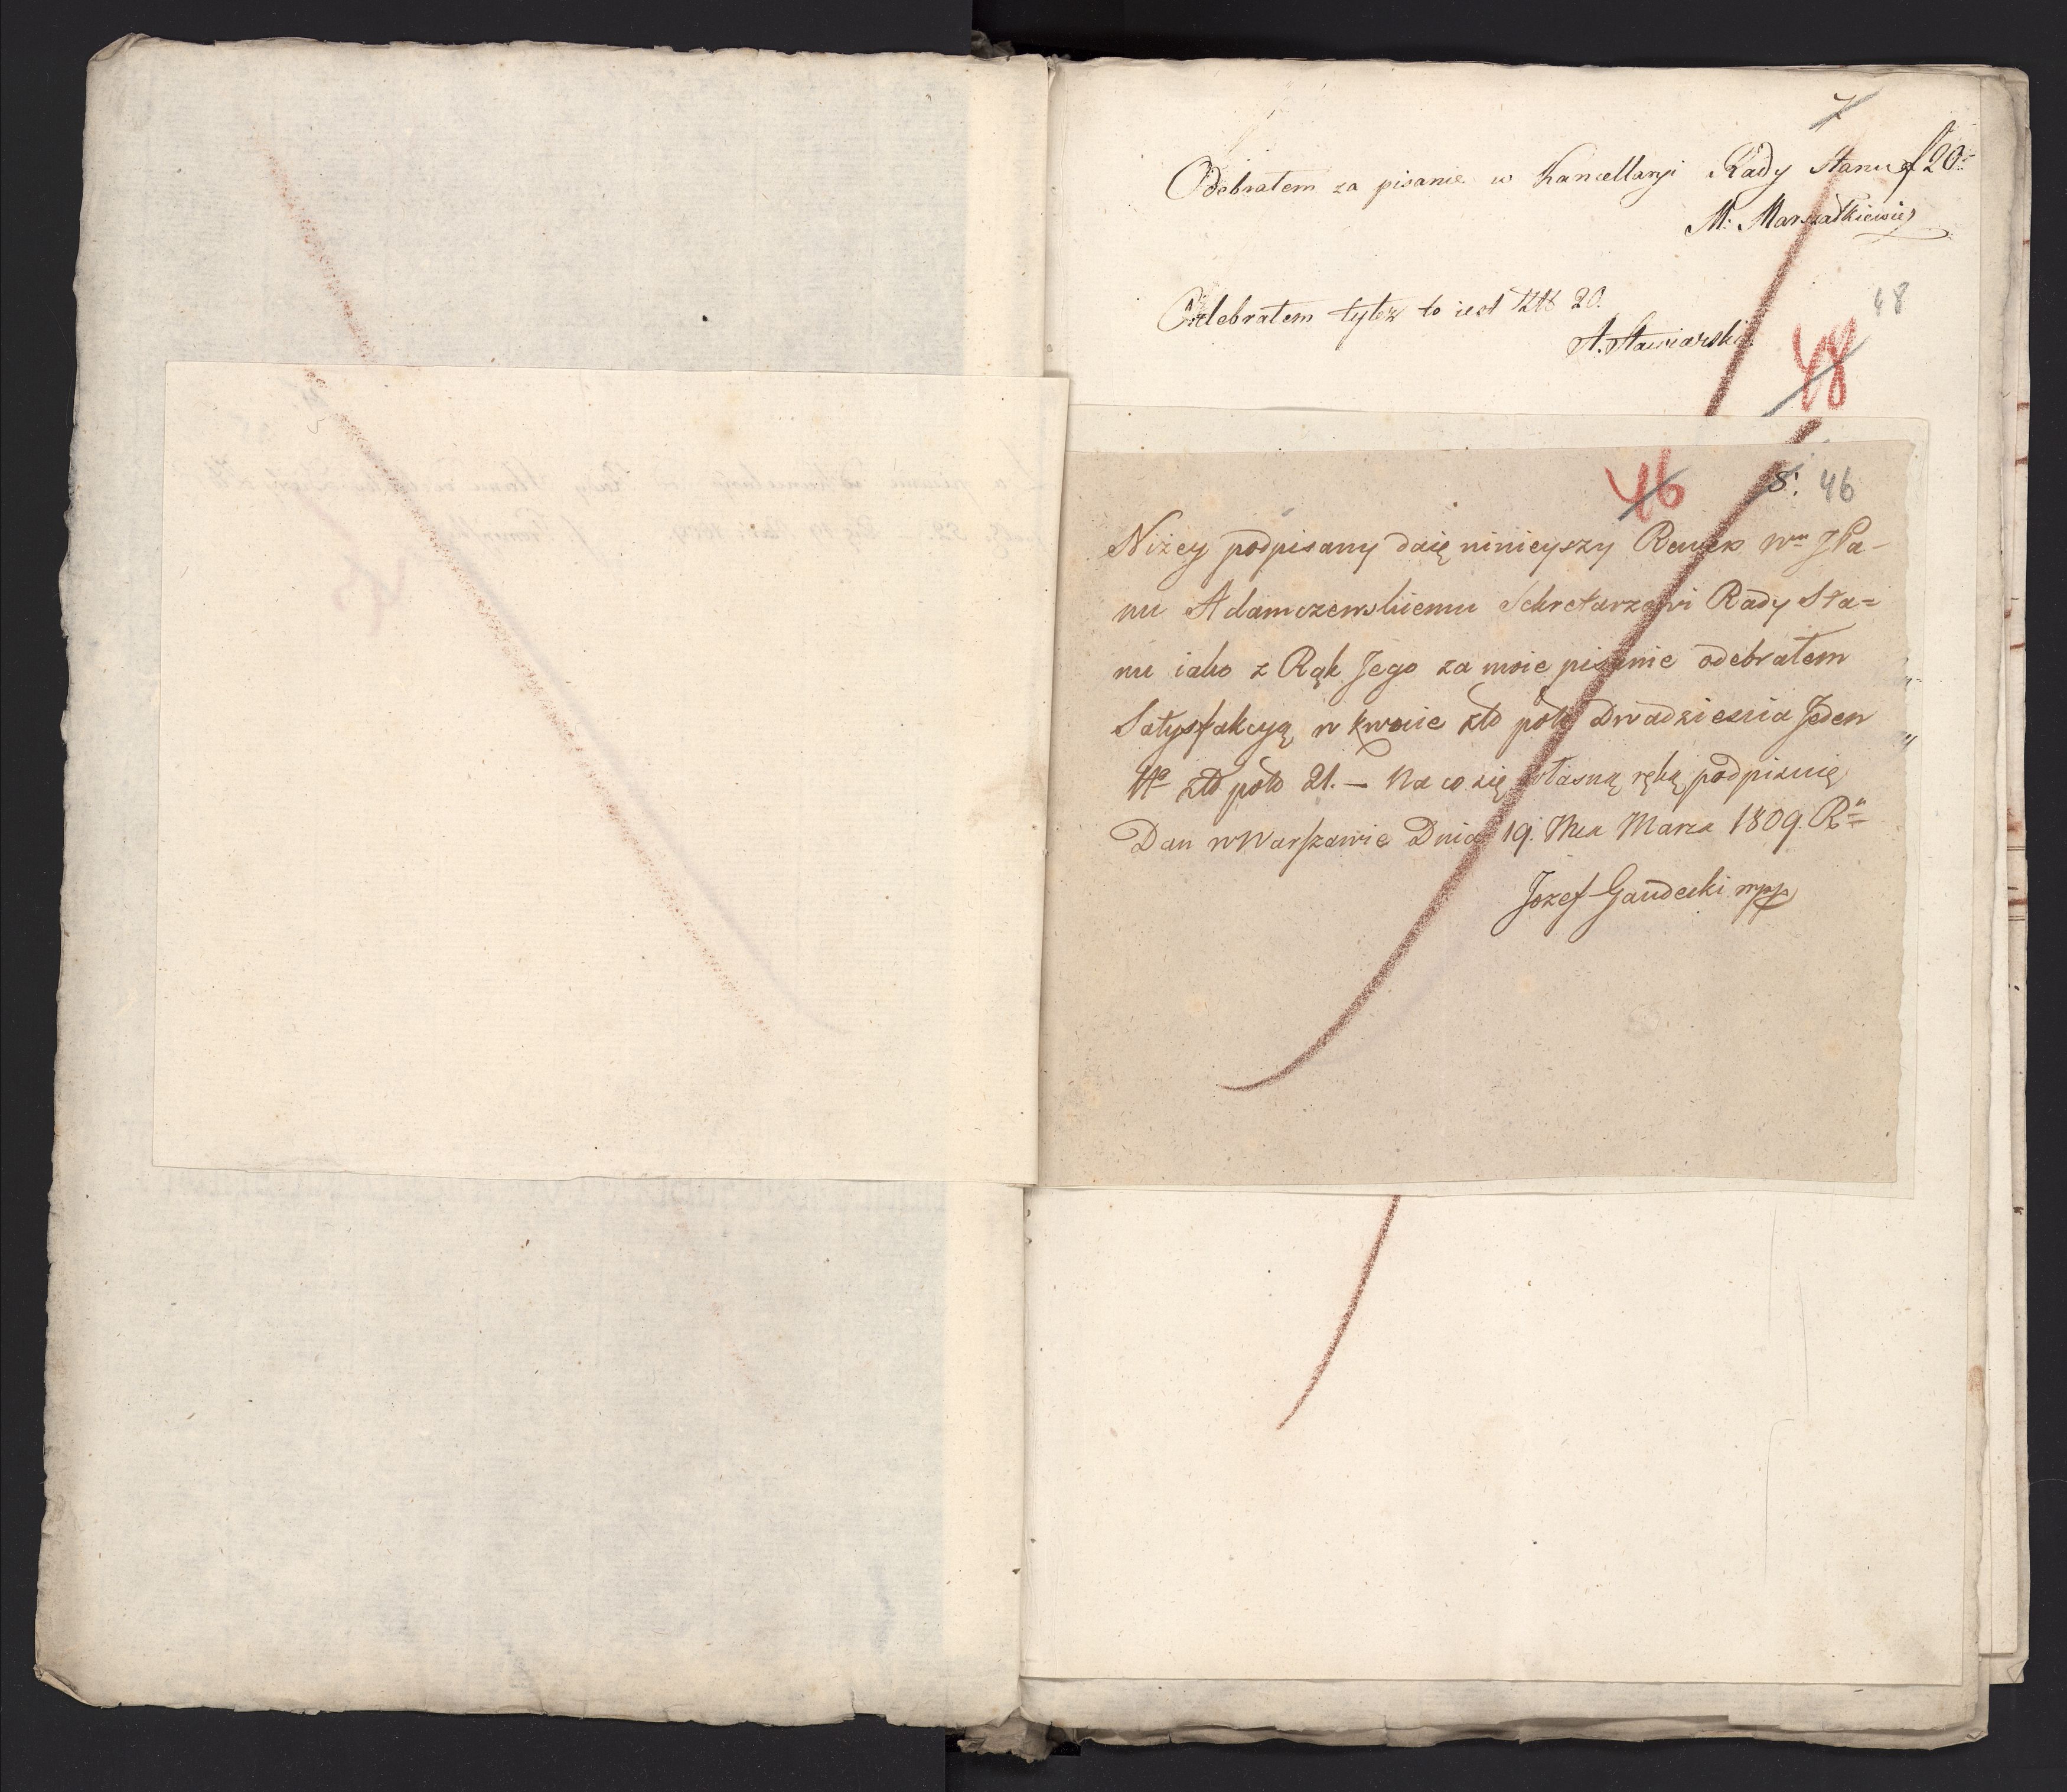 7
Odebrałem za pisanie w Kancellaryi Rady Stanu f 20
M. Marszałkiewicz
Odebrałem tyleż to iest Złt 20.
A. Stawiarski
48
48
46
8. 46
Niżey podpisany daię ninieyszy Rewers Wmu JPa-
nu Adamczewskiemu Sekretarzowi Rady Sta=
nu iako z Rąk Jego za moie pisanie odebrałem
Satysfakcyą w kwocie złt pols Dwadzieścia Jeden
No złt pols 21. — Na co się własną ręką podpisuię
Dan w Warszawie Dnia 19. Mca Marca 1809. R
Jozef Gaudecki mpp